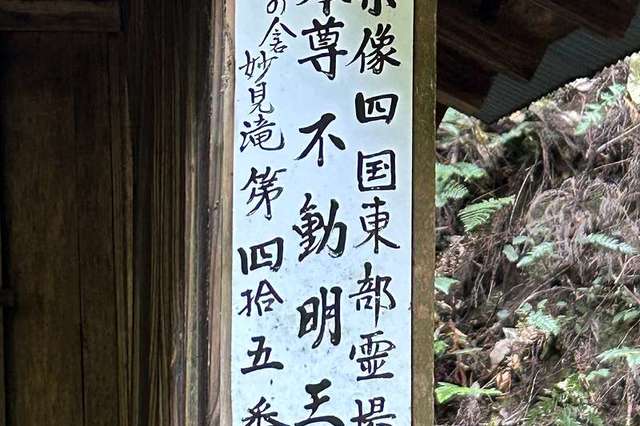 像四国東部霊場
尊不動明王
の舎妙見滝第四拾五番